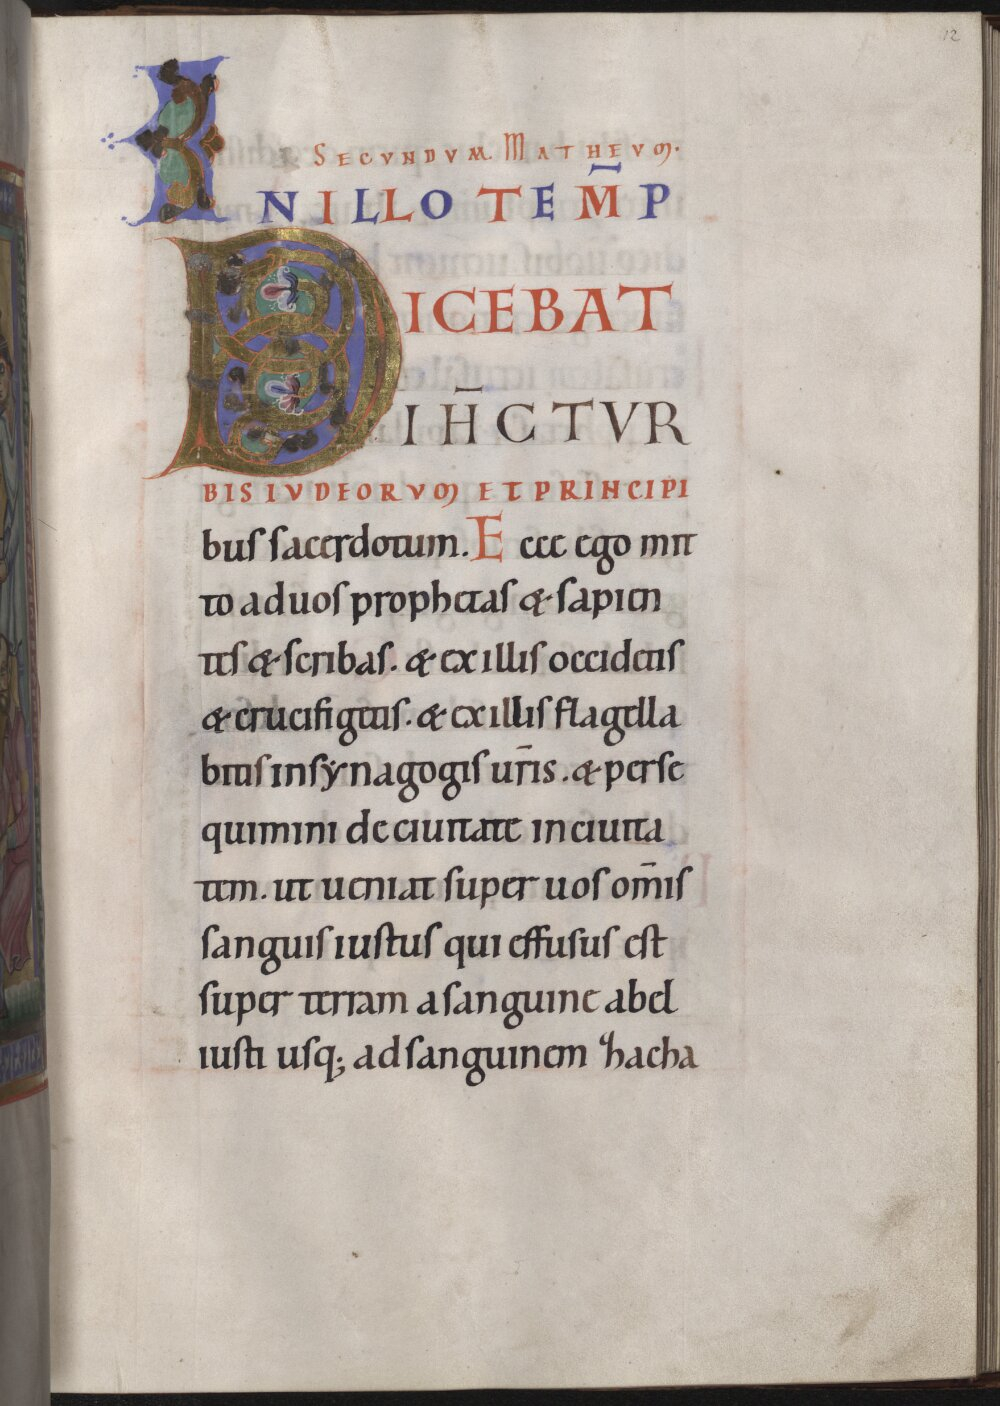 12
SECUNDUM MATHEUM.
IN ILLO TEMP̄
DICEBAT
IH̄C TVR
BIS IVDEORVM ET PRINCIPI
bus sacerdotum. Ecce ego mit
to ad uos prophetas & sapien
tes & scribas. & ex illis occidetis
& crucifigetis. & ex illis flagella
bitis in synagogis ur̄is. & perse
quimini de ciuitate in ciuita
tem. ut ueniat super uos om̄is
sanguis iustus qui effusus est
super terram a sanguine abel
iusti usq; ad sanguinem hacha